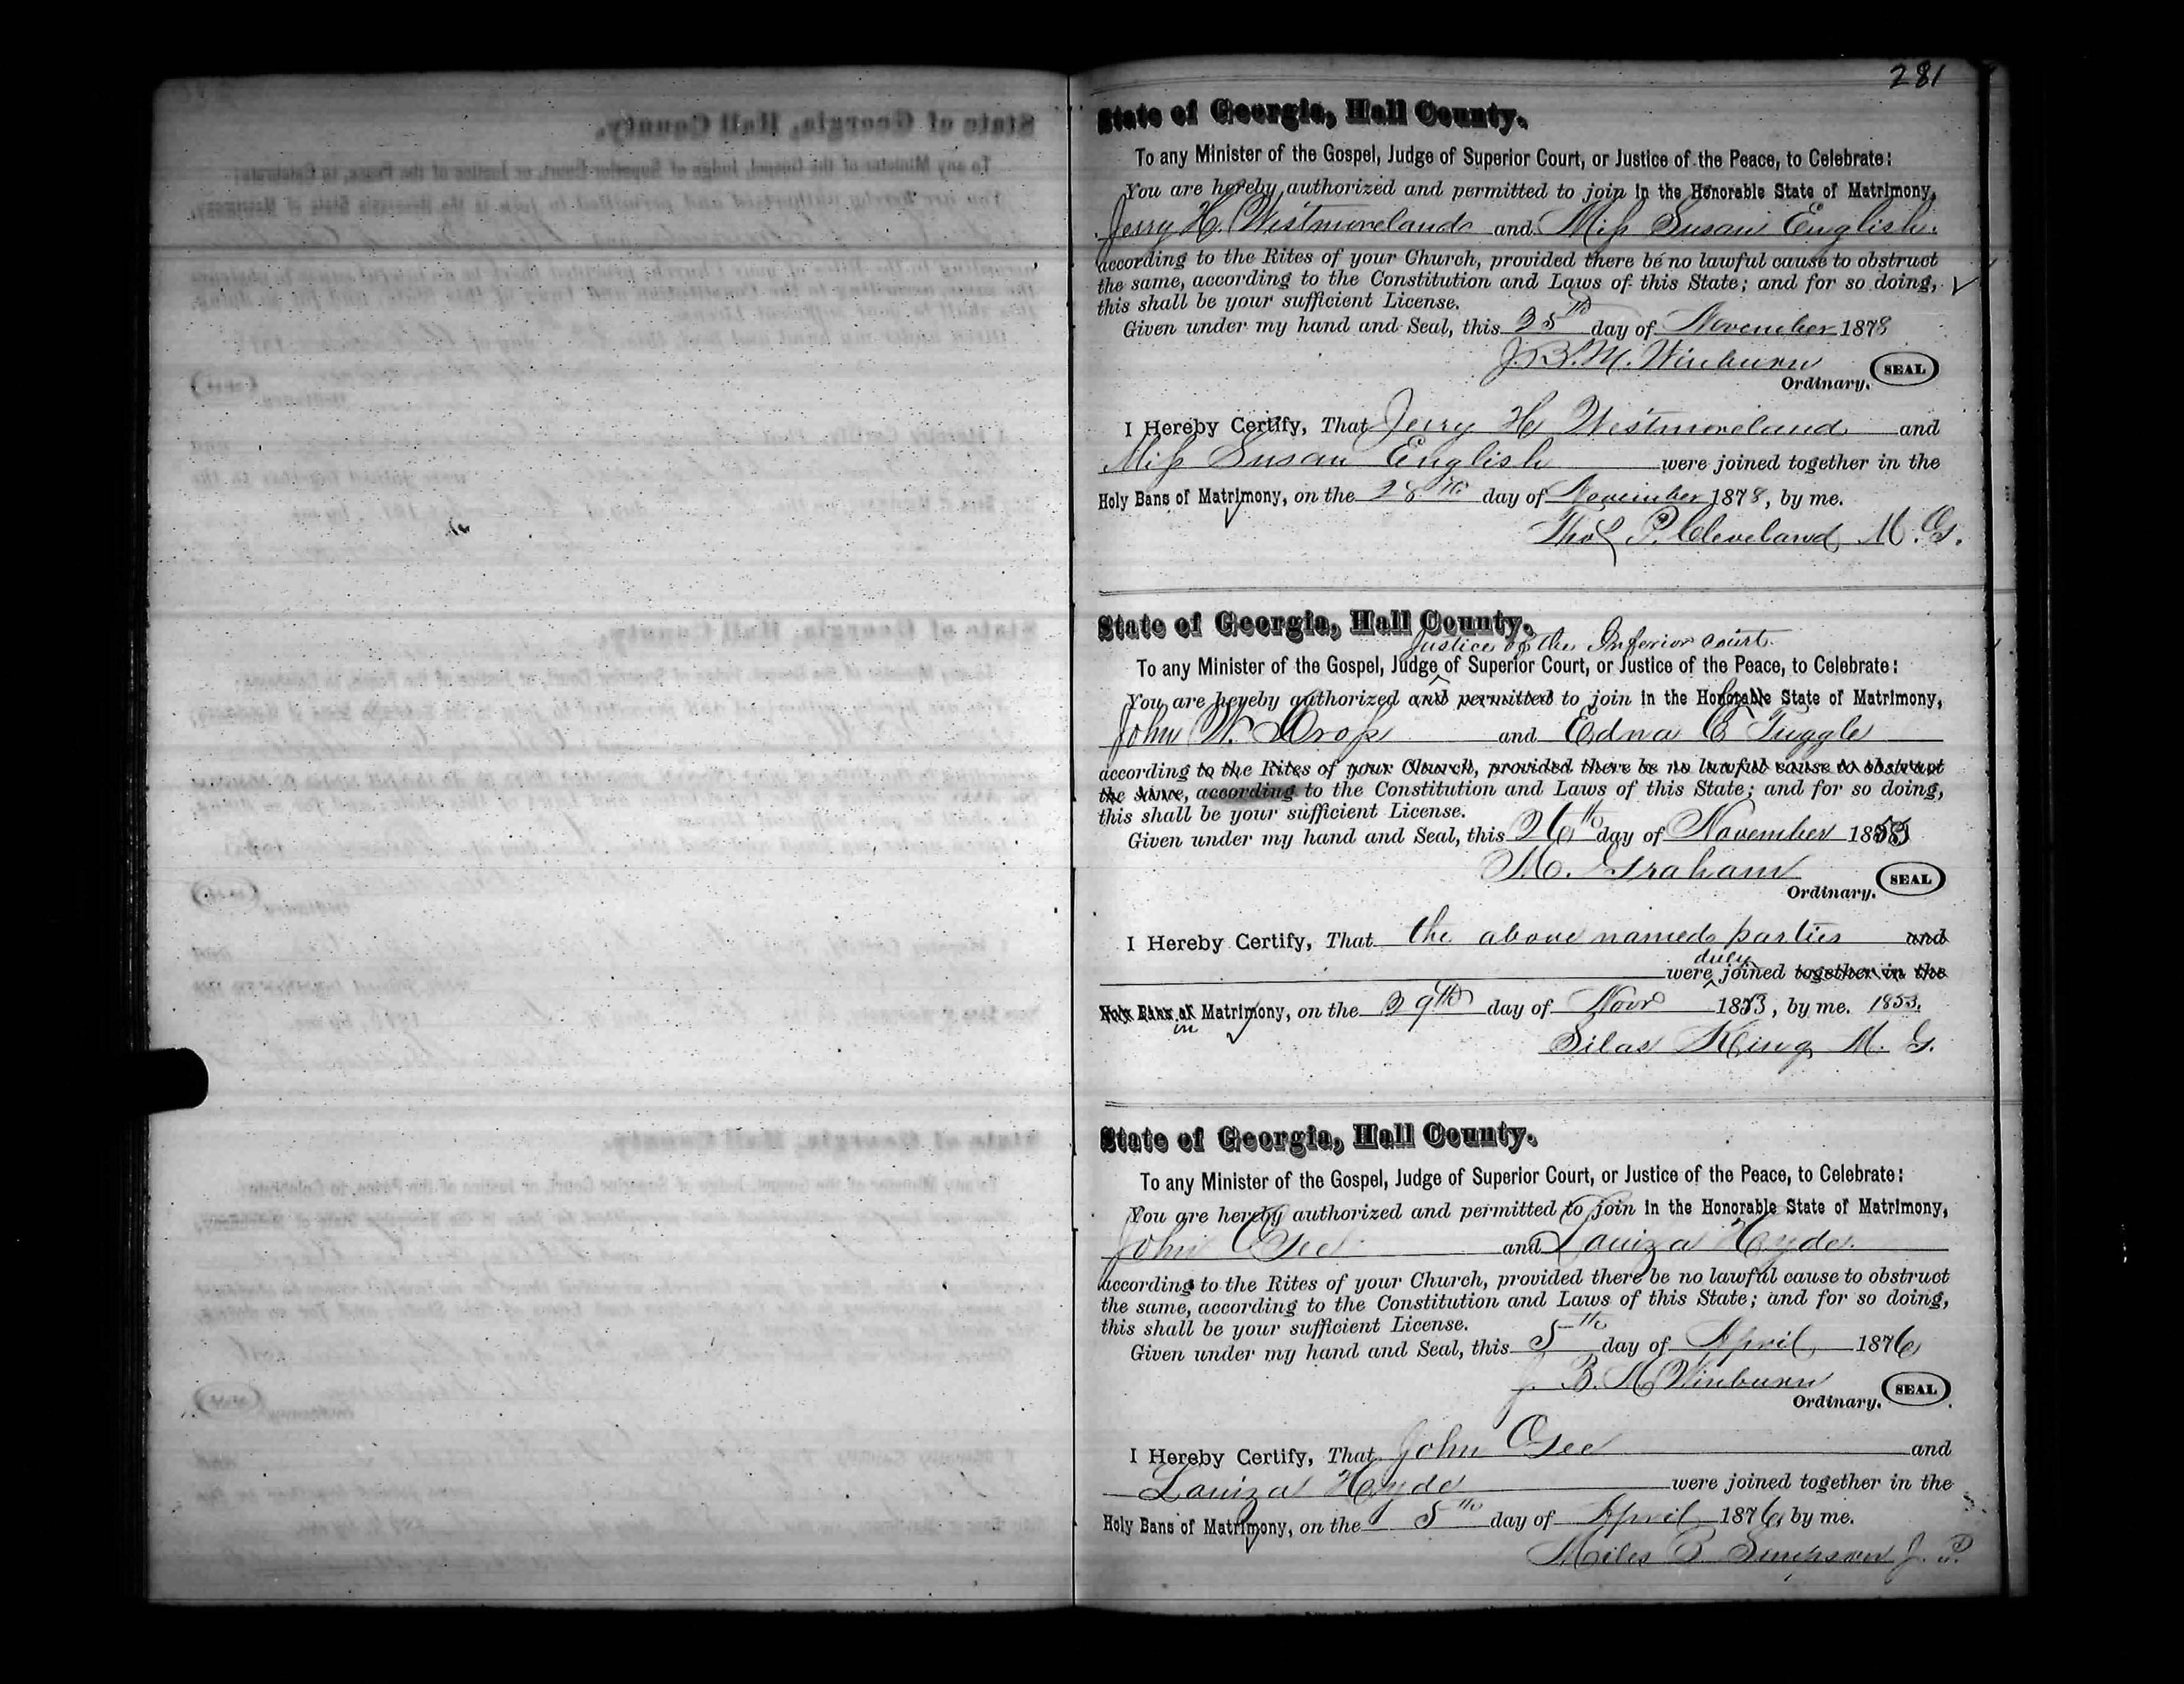 281
State of Georgia, Hall County.
To any Minister of the Gospel, Judge of Superior Court, or Justice of the Peace, to Celebrate:
You are hereby authorized and permitted to join in the Honorable State of Matrimony,
Jerry H. Westmoreland and Miss Susan English.
according to the Rites of your Church, provided there be no lawful cause to obstruct
the same, according to the Constitution and Laws of this State; and for so doing,
this shall be your sufficient License.
Given under my hand and Seal, this 25th day of November 1878
J. B. M. Winburn
Ordinary. SEAL
I Hereby Certify, That Jerry H Westmoreland and
Miss Susan English were joined together in the
Holy Bans of Matrimony, on the 28th day of November 1878, by me.
Thos P. Cleveland M. G.
State of Georgia, Hall County.
Justice of the Inferior Court.
To any Minister of the Gospel, Judge of Superior Court, or Justice of the Peace, to Celebrate:
You are hereby authorized and permitted to join in the Honorable State of Matrimony,
John W. and Edna E Tuggle
according to the Rites of your Church, provided there be no lawful cause to obstruct
the same, according to the Constitution and Laws of this State; and for so doing,
this shall be your sufficient License.
Given under my hand and Seal, this 26th day of November 1853
M. Graham
Ordinary. SEAL
I Hereby Certify, That the above named parties and
were duly joined together in the
Holy Bans of in Matrimony, on the 29th day of Novr 1853, by me. 1853.
Silas King M. G.
State of Georgia, Hall County.
To any Minister of the Gospel, Judge of Superior Court, or Justice of the Peace, to Celebrate:
You are hereby authorized and permitted to join in the Honorable State of Matrimony,
John Gee and Louiza Hyde.
according to the Rites of your Church, provided there be no lawful cause to obstruct
the same, according to the Constitution and Laws of this State; and for so doing,
this shall be your sufficient License.
Given under my hand and Seal, this 5th day of April 1876
J. B. M. Winburn
Ordinary. SEAL
I Hereby Certify, That John Gee and
Louiza Hyde were joined together in the
Holy Bans of Matrimony, on the 5th day of April 1876, by me.
Miles P. Simpson J. P.